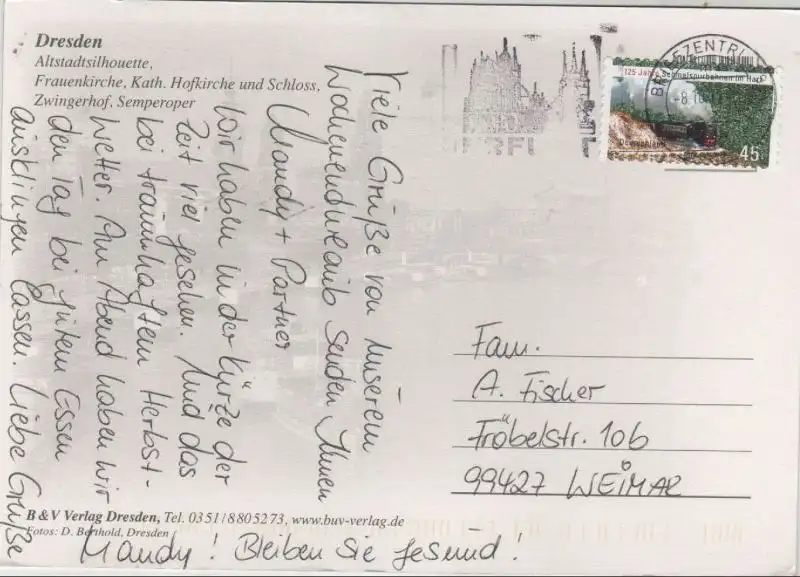 Dresden
Altstadtsilhouette,
Frauenkirche, Kath. Hofkirche und Schloss,
Zwingerhof, Semperoper
Viele Grüße von unserem
Wochenendurlaub senden Ihnen
Mandy + Partner
Wir haben in der Kürze der
Zeit viel gesehen. Und das
bei traumhaftem Herbst-
wetter. Am Abend haben wir
den Tag bei gutem Essen
ausklingen lassen. Liebe Grüße
Mandy! Bleiben Sie gesund!
125 Jahre Schmalspurbahnen im Harz
Deutschland
45
Fam.
A. Fischer
Fröbelstr. 10b
99427 WEIMAR
B & V Verlag Dresden, Tel. 0351/8805273, www.buv-verlag.de
Fotos: D. Berthold, Dresden